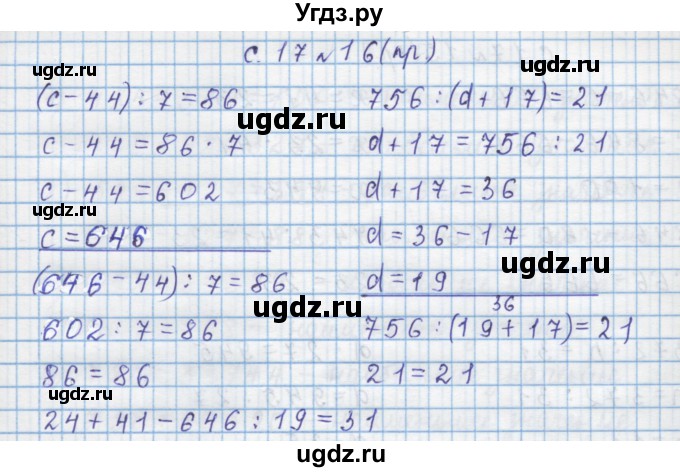 Угдз.ру
с. 17 № 16(пр)
(c-44):7=86
c-44=86·7
c-44=602
c=646
(646-44):7=86
602:7=86
86=86
756:(d+17)=21
d+17=756:21
d+17=36
d=36-17
d=19
36
756:(19+17)=21
21=21
24+41-646:19=31
ugdz.ru
ugdz.ru
ugdz.ru
ugdz.ru
ugdz.ru
ugdz.ru
ugdz.ru
ugdz.ru
ugdz.ru
Угдз.ру